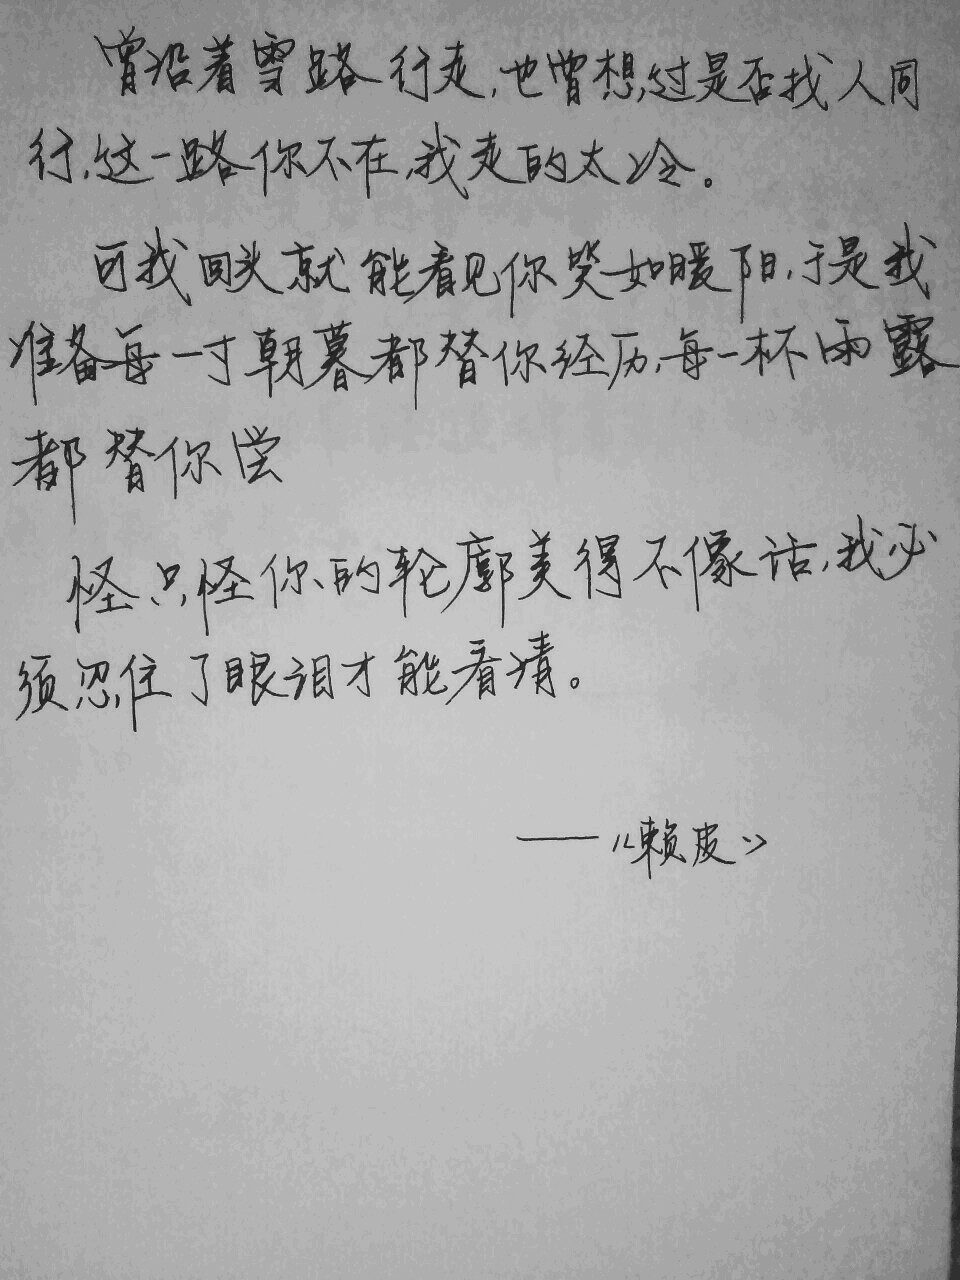 曾沿着雪路行走,也曾想过是否找人同
行,这一路你不在,我走的太冷。
可我回头就能看见你笑如暖阳,于是我
准备每一寸朝暮都替你经历,每一杯雨露
都替你尝
怪只怪你的轮廓美得不像话,我必
须忍住了眼泪才能看清。
——《赖皮》